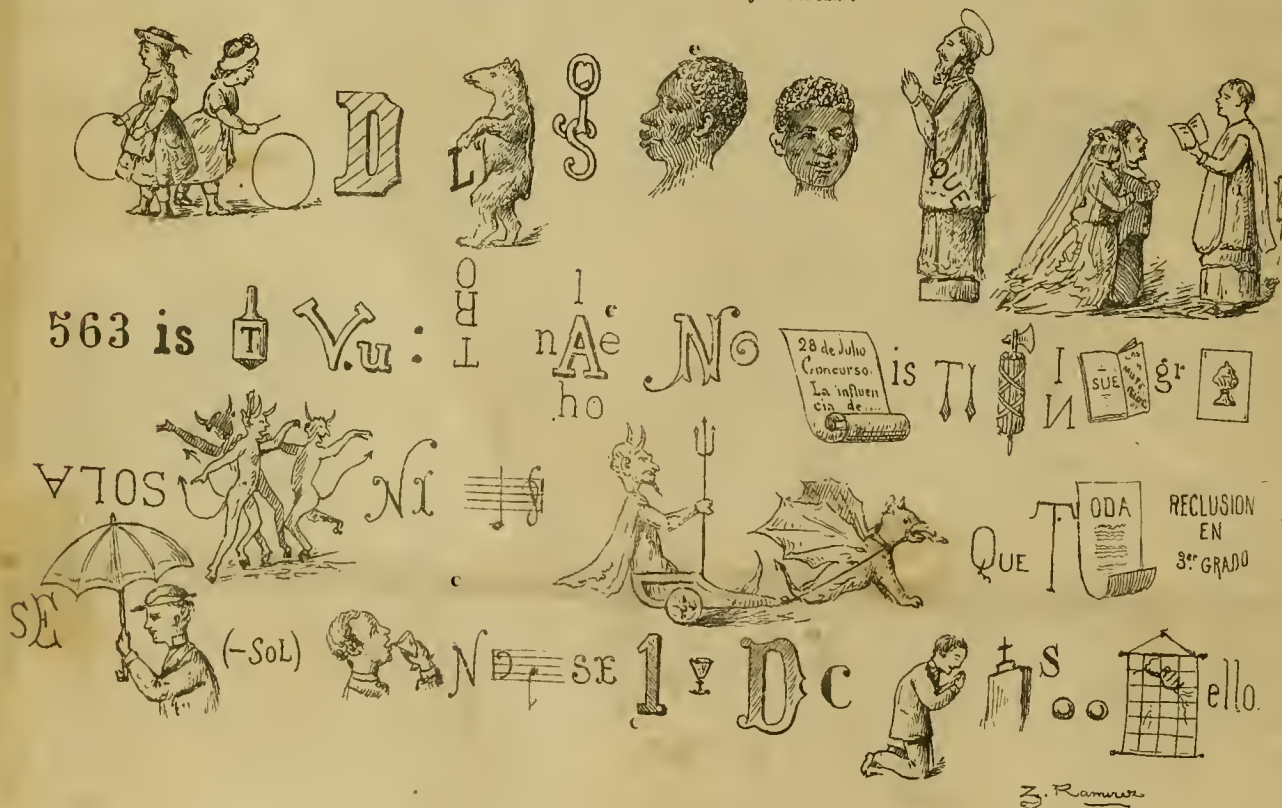 D L OS QUE
563 is T V.u: TRO l c nAe ho No 28 de Julio Concurso. La influencia de.... is TI I N SUE LOS MISTERIOS gr
SOLA NI QUE T ODA RECLUSION EN 3er GRADO
SE (-SOL) c N D SE 1 D C S ello.
Z. Ramirez